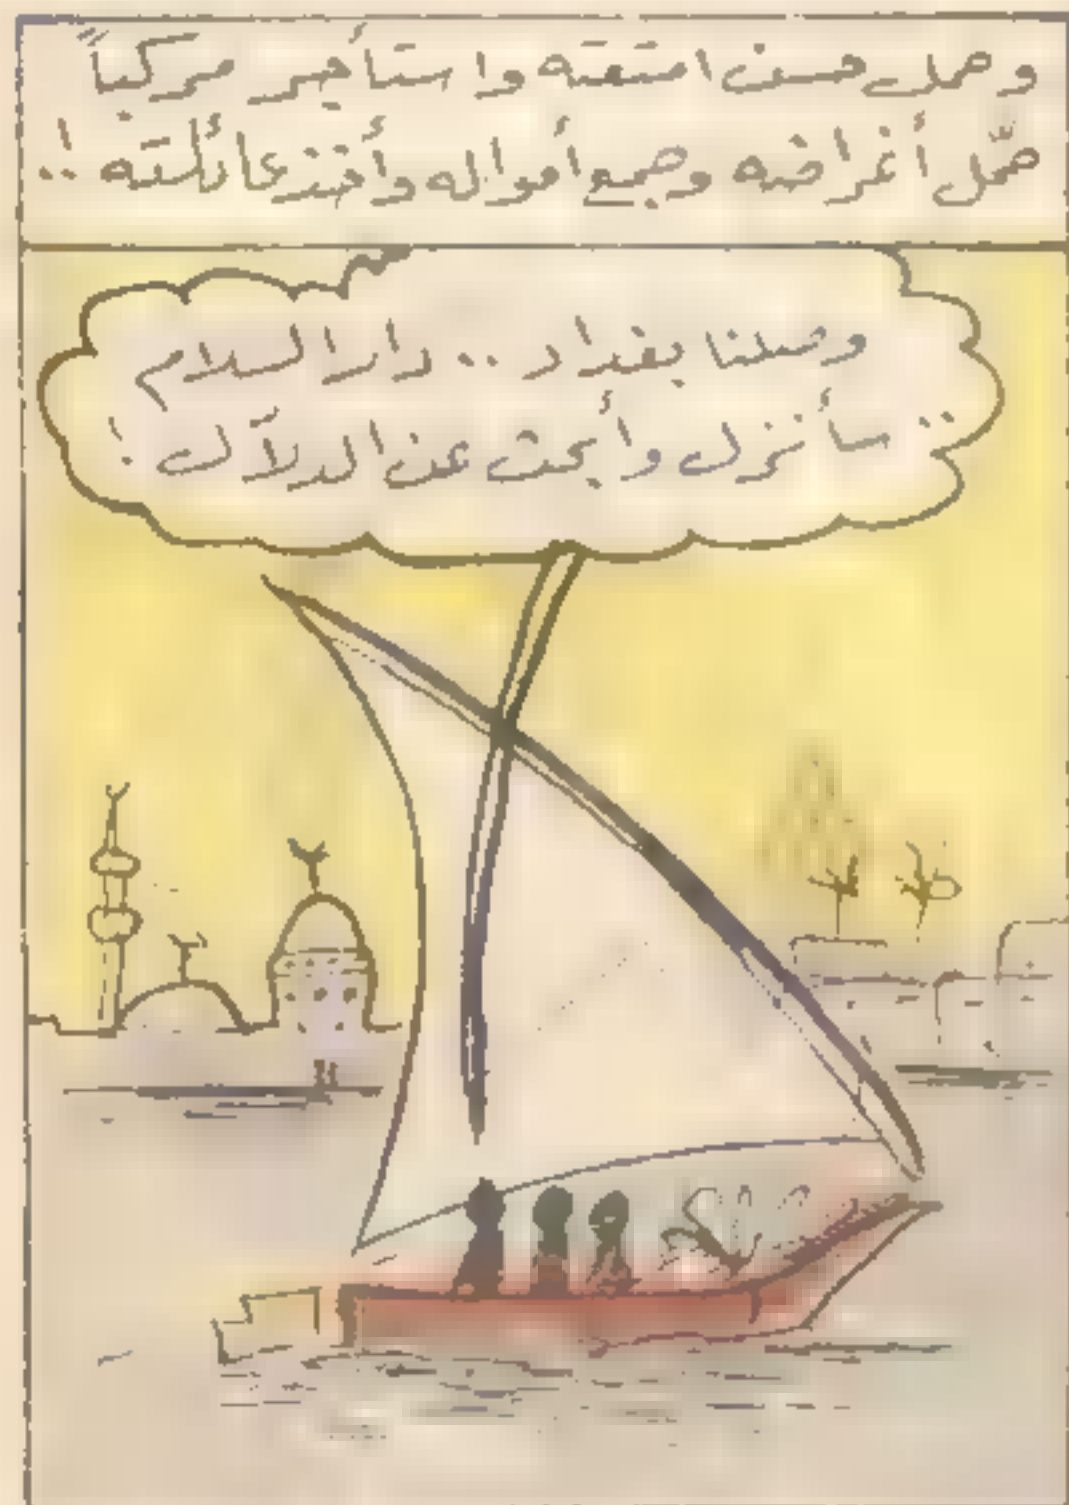 وحمل حسن امتعته واستأجر مركباً
حمّل أغراضه وجمع أمواله وأخذ عائلته ..!
وصلنا بغداد .. دار السلام
.. سأنزل وأبحث عن الدلاّل !